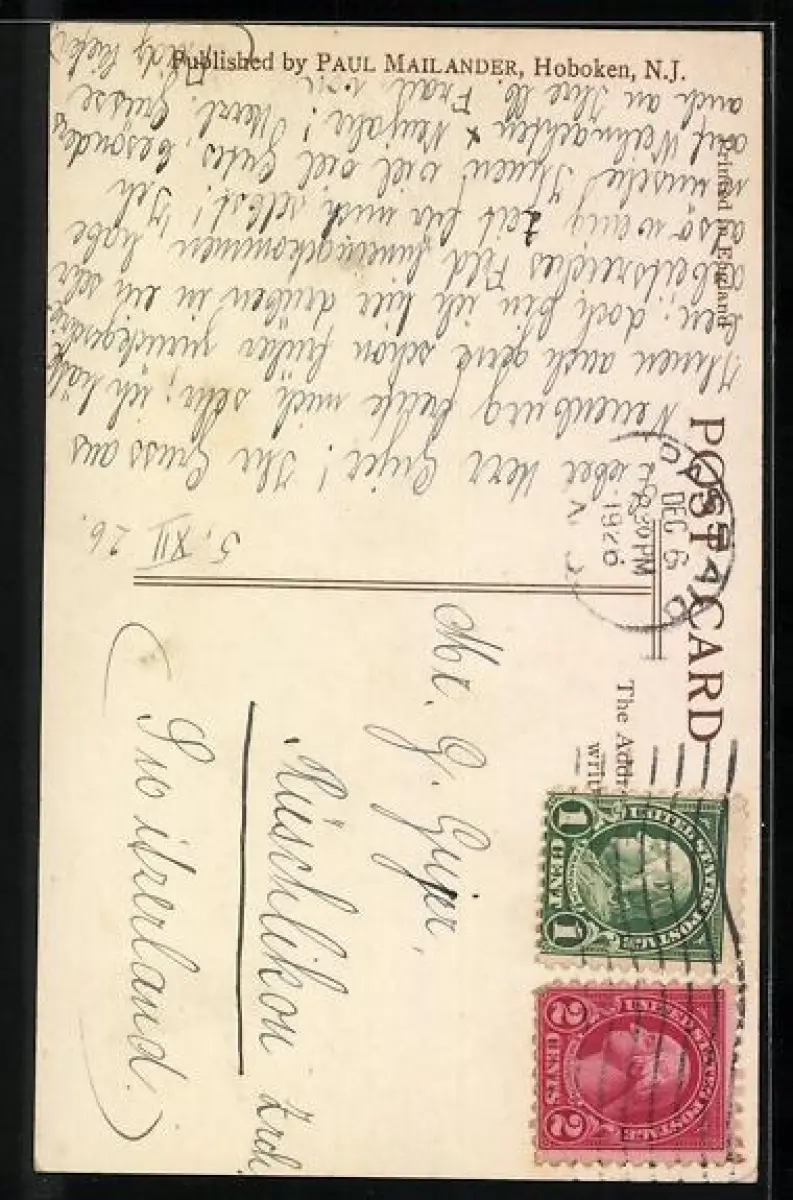 Published by PAUL MAILANDER, Hoboken, N.J.
Printed in England
POST CARD
The Addr
writ
5. XII 26.
Lieber Herr Gujer! Ihr Gruss aus
Neuenburg freute mich sehr; ich hätte
Ihnen auch gerne schon früher zurückgeschrie
ben; doch bin ich hier drüben in ein sehr
arbeitsreiches Feld hineingekommen, habe
also wenig Zeit für mich selbst! Ich
wünsche Ihnen viel viel Gutes, besonders
auf Weihnachten & Neujahr! Herzl. Grüsse
auch an Ihre lb. Frau von
DEC 6
2:30 PM
1926
Mr. G. Gujer,
Rüschlikon Zrch.
(Switzerland.)
UNITED STATES POSTAGE
1 CENT 1
UNITED STATES POSTAGE
2 CENTS 2